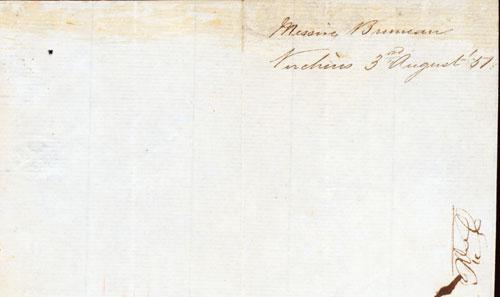 Messire Bruneau
Verchères 3rd August '51.